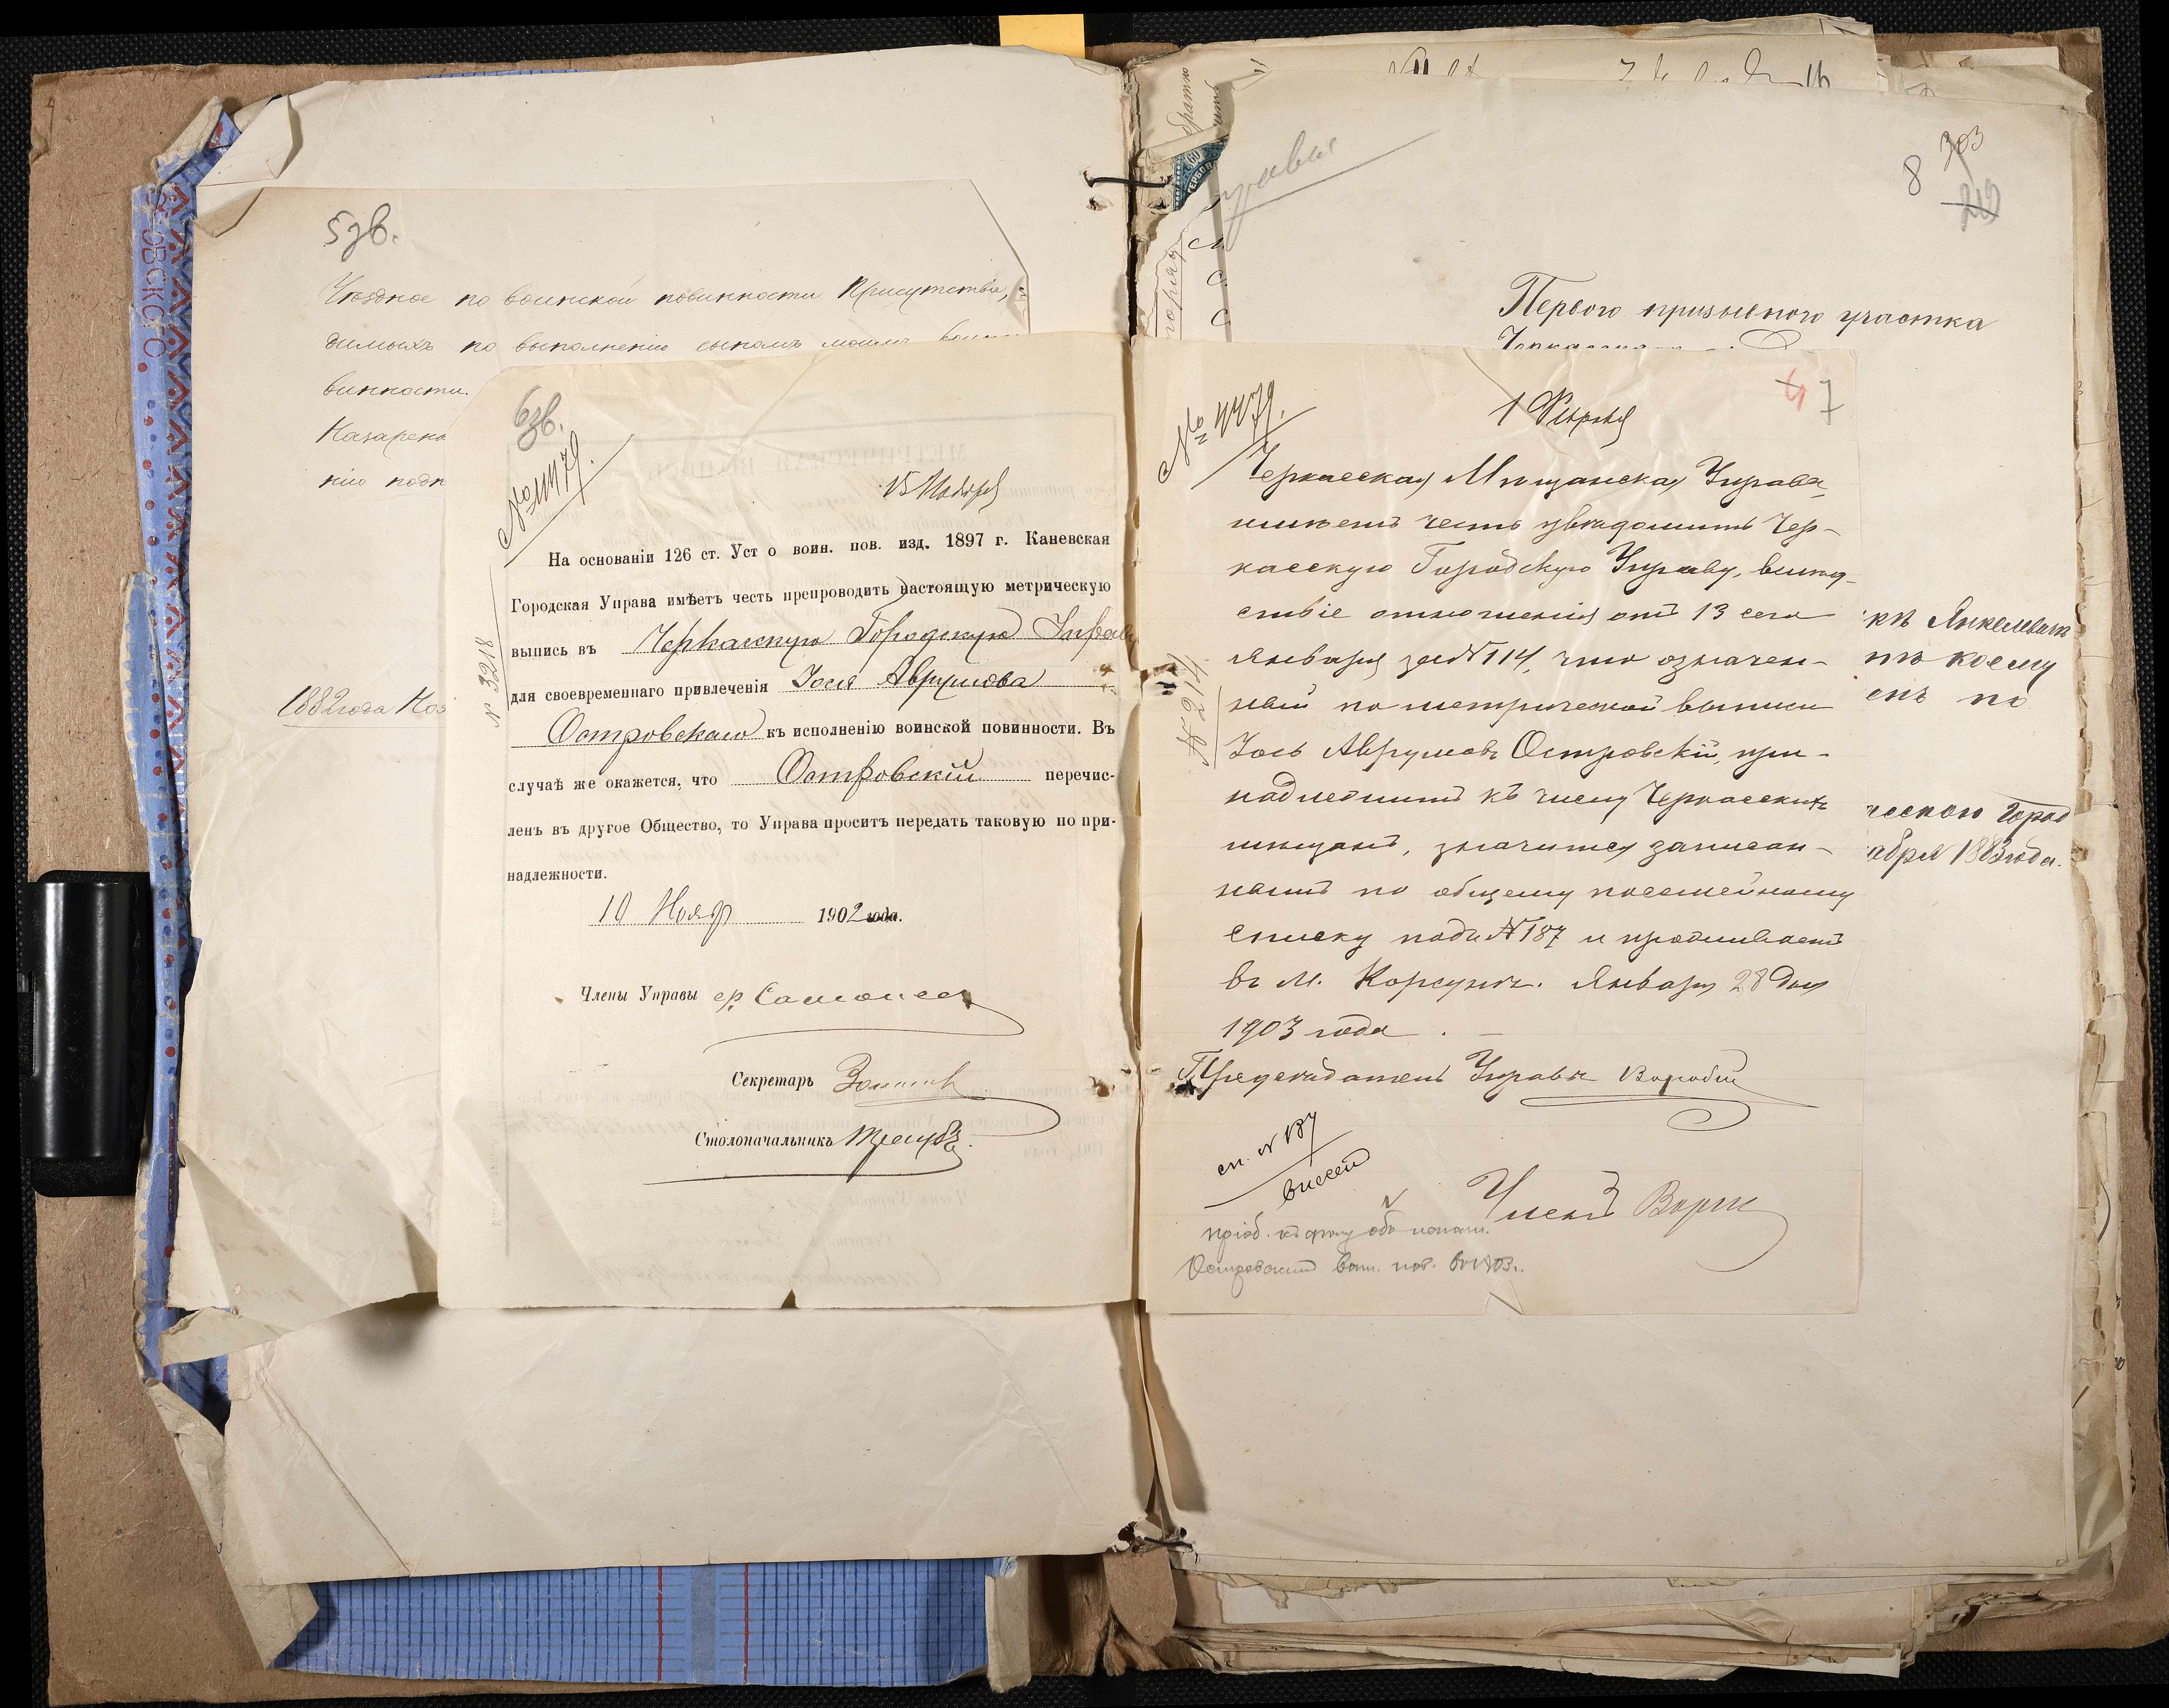 5 зв.
Уѣздное по воинской повинности Присутствіе,
димыхъ по выполненію сыномъ моимъ воин
винности.
Назарен
нію подп
1882 года Ноя
6 зв.
№ 4479.
15 Ноября
На основаніи 126 ст. Уст о воин. пов. изд. 1897 г. Каневская
Городская Управа имѣетъ честь препроводить настоящую метрическую
выпись въ Черкасскую Городскую Управу
для своевременнаго привлеченія Іося Аврумова
Островскаго къ исполненію воинской повинности. Въ
случаѣ же окажется, что Островскій перечис-
ленъ въ другое Общество, то Управа проситъ передать таковую по при-
надлежности.
10 Нояб 1902 года.
№ 3218
Члены Управы
Секретарь
Столоначальникъ
8 303
212
Перваго призывного участка
къ Янкелевичъ
по коему
енъ по
ческою Город
абря 1883 года.
№ 4479.
1 Февраля
4 7
Черкасская Мѣщанская Управа
имѣетъ честь увѣдомить Чер-
касскую Городскую Управу, вслѣд-
ствіе отношенія отъ 13 сего
Января за № 114, что означен-
ный по метрической выписи
Іось Аврумовъ Островскій, при-
надлежитъ къ числу Черкасскихъ
мѣщанъ, значится записан-
нымъ по общему посемейному
списку подъ № 187 и проживаетъ
въ М. Корсунѣ. Января 28 дня
1903 года.
№ 214
Предсѣдатель Управы
сп. № 187
внесенъ
Членъ
пріоб. къ
Островскимъ воин. пов. въ 1903 г.
60
ГЕРБОВ